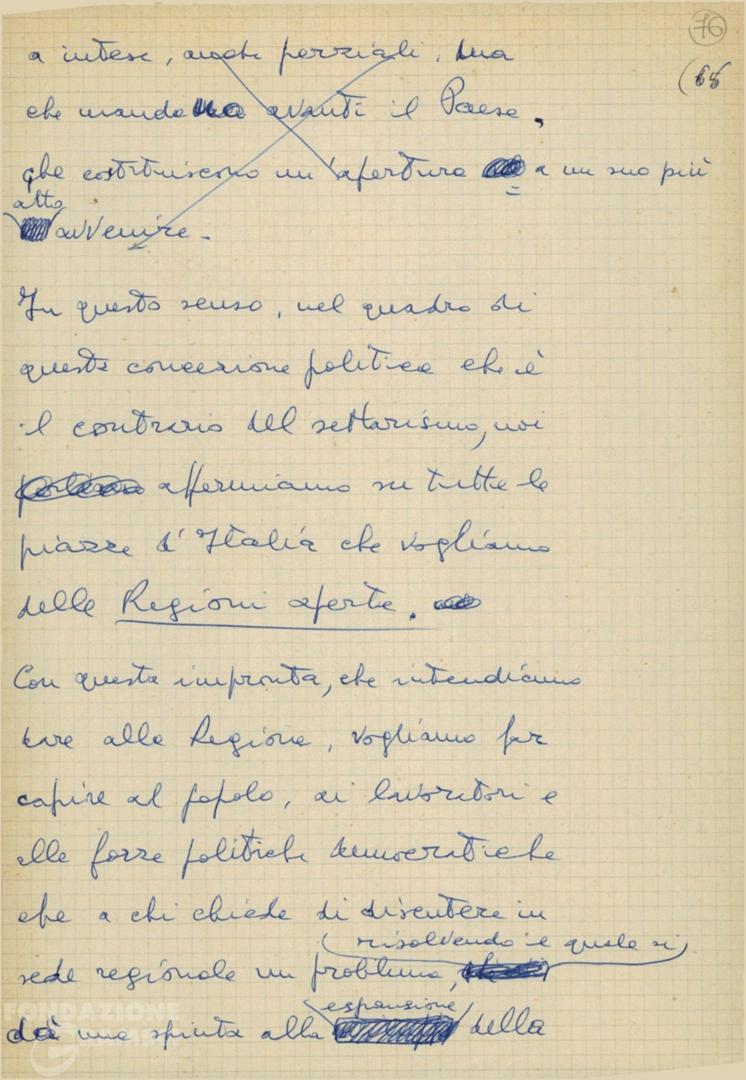 76
(65
a intese, anche parziali, ma
che mandano avanti il Paese,
che costituiscono un'apertura a un suo più
alto
avvenire.
In questo senso, nel quadro di
questa concezione politica che è
il contrario del settarismo, noi
affermiamo su tutte le
piazze d'Italia che vogliamo
delle Regioni aperte.
Con questa impronta, che intendiamo
dare alla Regione, vogliamo far
capire al popolo, ai lavoratori e
alle forze politiche democratiche
che a chi chiede di discutere in
risolvendo il quale si
sede regionale un problema,
espansione
dà una spinta alla della
FONDAZIONE